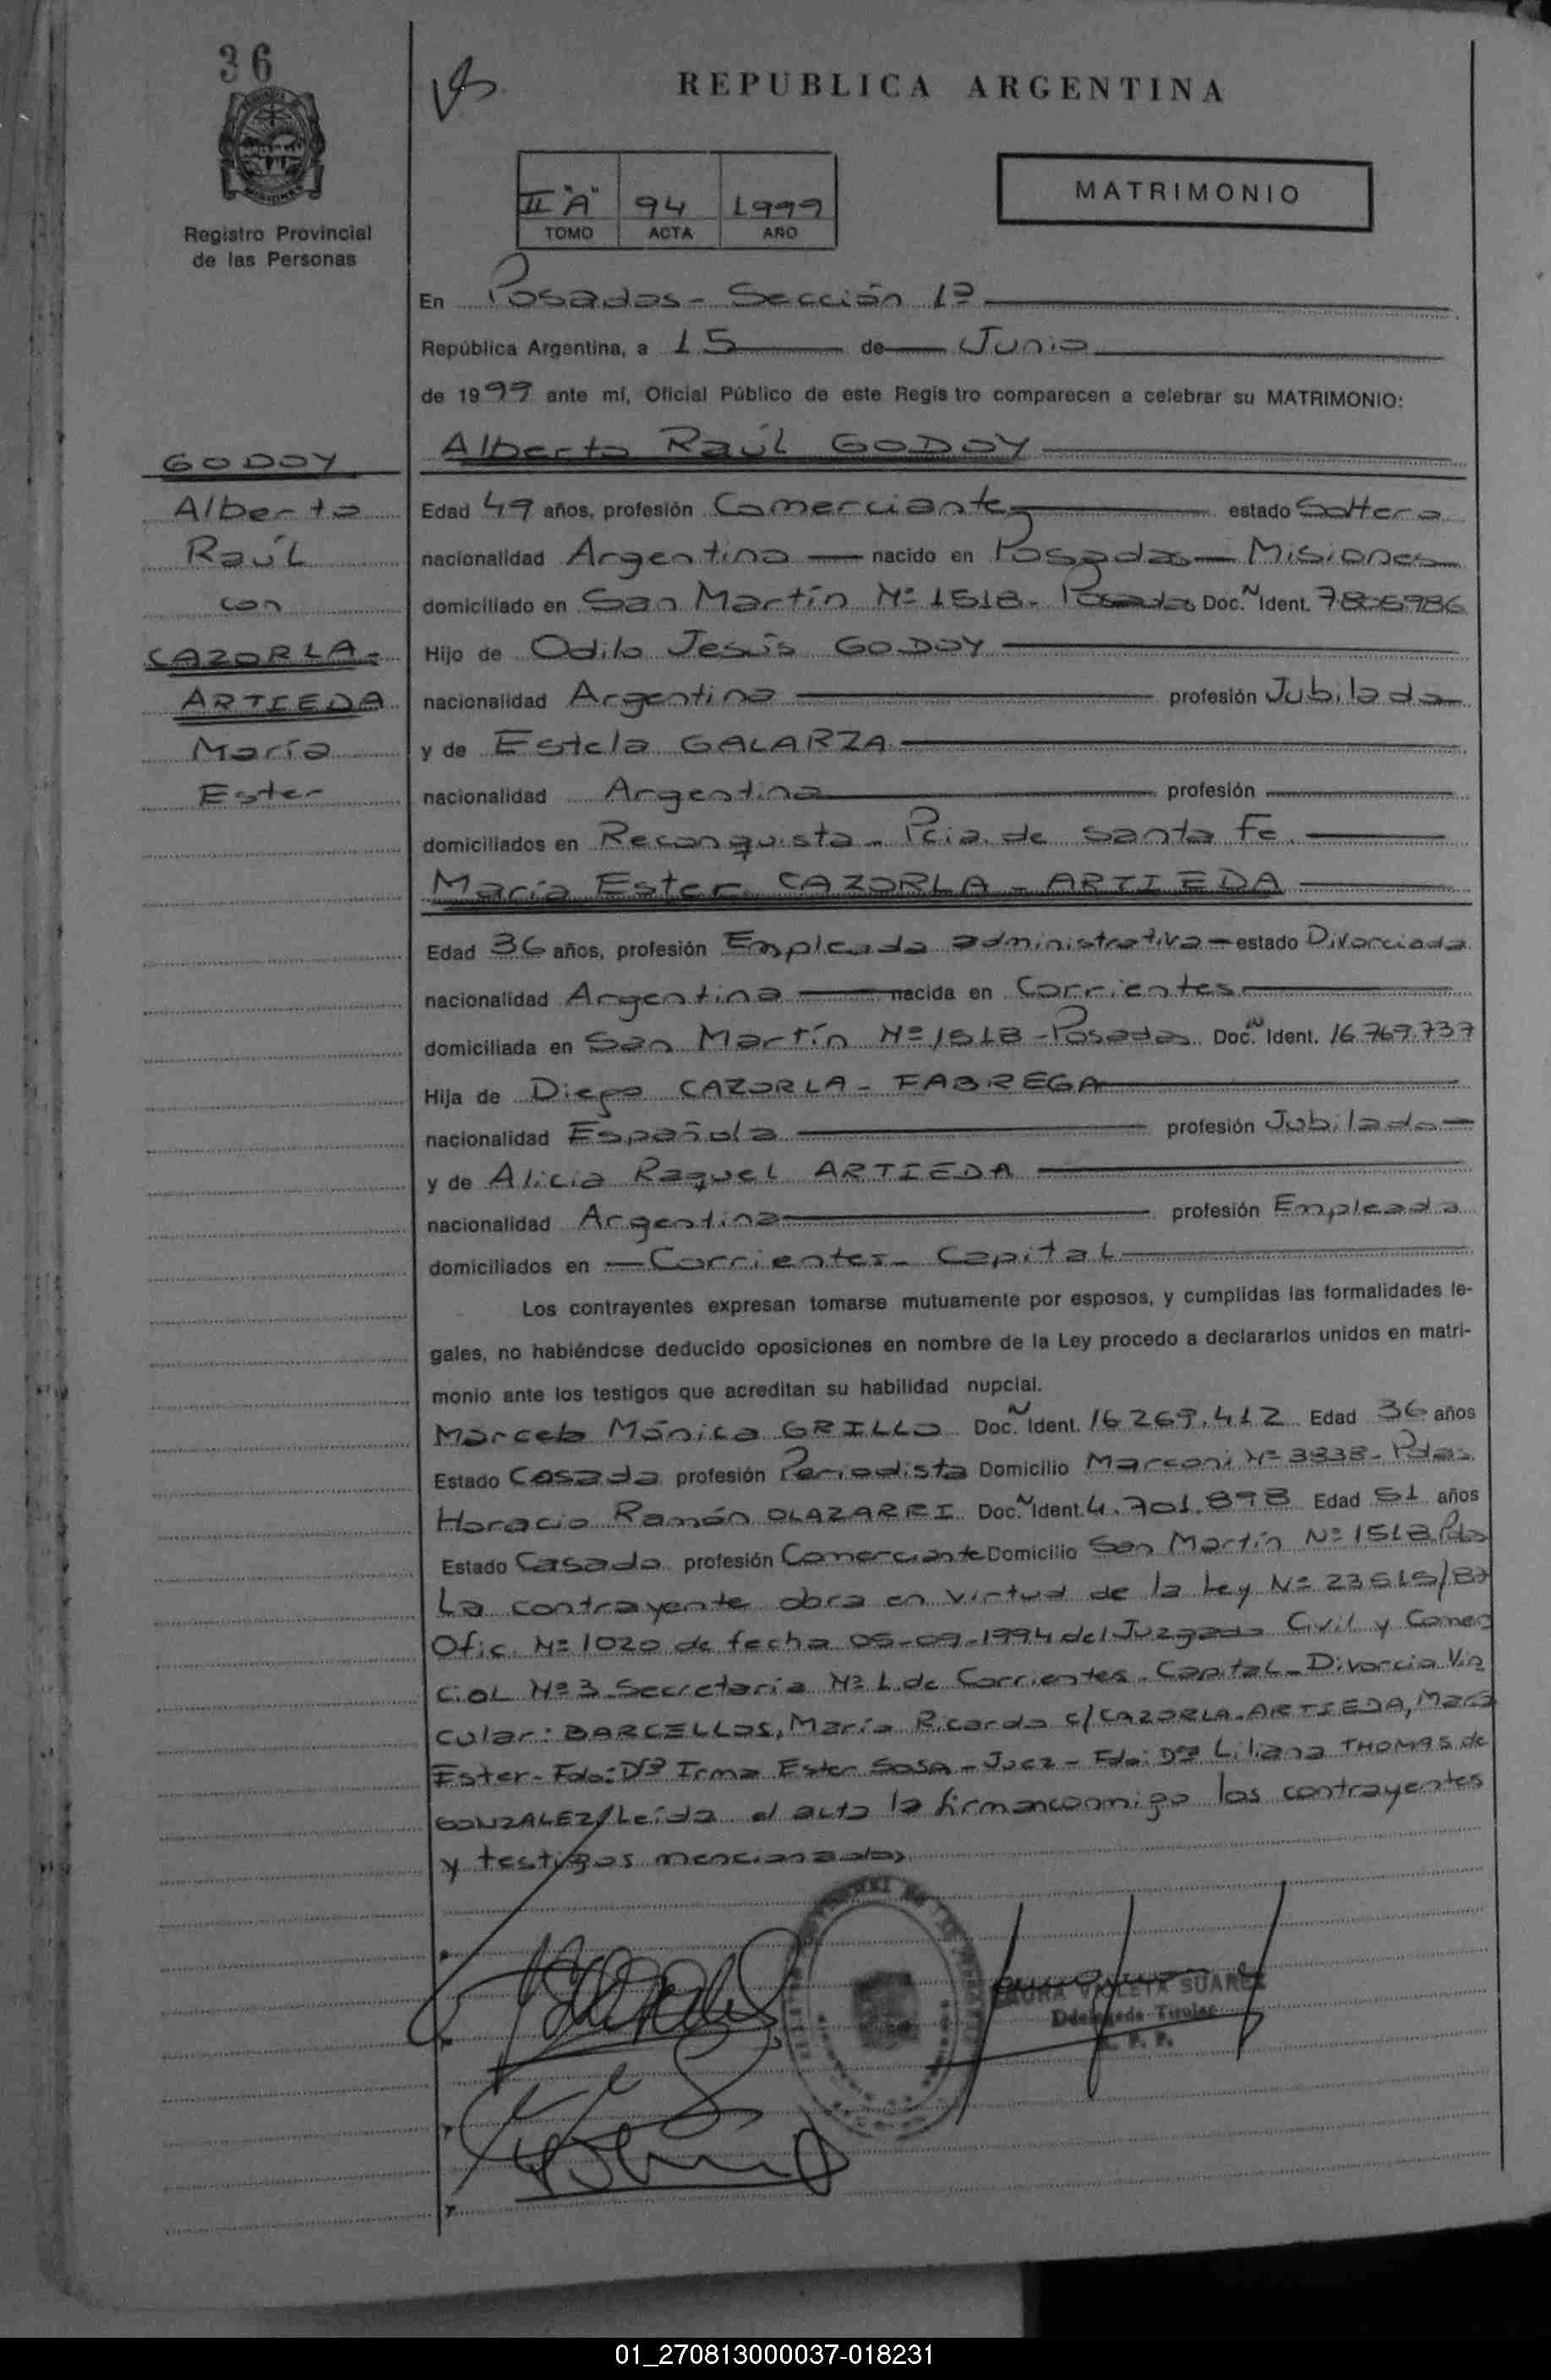 36
REPUBLICA ARGENTINA
MATRIMONIO
II "A" 94 1999
TOMO ACTA AÑO
Registro Provincial
de las Personas
En Posadas - Sección 1ª
República Argentina, a 15 de Junio
de 1999 ante mí, Oficial Público de este Registro comparecen a celebrar su MATRIMONIO:
GODOY
Alberto
Raúl
con
CAZORLA-
ARTIEDA
María
Ester
Alberto Raúl GODOY
Edad 49 años, profesión Comerciante estado Soltero
nacionalidad Argentina nacido en Posadas - Misiones
domiciliado en San Martín Nº 1518 - Posadas Doc. N Ident.
Hijo de Odilo Jesús GODOY
nacionalidad Argentina profesión Jubilado
y de Estela GALARZA
nacionalidad Argentina profesión
domiciliados en Reconquista - Pcia. de Santa Fe
María Ester CAZORLA - ARTIEDA
Edad 36 años, profesión Empleada administrativa estado Divorciada
nacionalidad Argentina nacida en Corrientes
domiciliada en San Martín Nº 1518 - Posadas Doc. N Ident. 16.769.737
Hija de Diego CAZORLA - FABREGA
nacionalidad Española profesión Jubilado
y de Alicia Raquel ARTIEDA
nacionalidad Argentina profesión Empleada
domiciliados en Corrientes - Capital
Los contrayentes expresan tomarse mutuamente por esposos, y cumplidas las formalidades le-
gales, no habiéndose deducido oposiciones en nombre de la Ley procedo a declararlos unidos en matri-
monio ante los testigos que acreditan su habilidad nupcial.
Marcela Mónica GRILLO Doc. N Ident. 16.269.412 Edad 36 años
Estado Casada profesión Periodista Domicilio Marconi Nº 3838 - Pdas.
Horacio Ramón OLAZARRI Doc. N Ident. 4.701.898 Edad 51 años
Estado Casado profesión Comerciante Domicilio San Martín Nº 1518 Pdas
La contrayente obra en virtud de la Ley Nº 23515/87
Ofic. Nº 1020 de fecha 05-09-1994 del Juzgado Civil y Comer
cial Nº 3 Secretaria Nº 1 de Corrientes - Capital - Divorcio Vin
cular: BARCELLOS, Mario Ricardo c/ CAZORLA - ARTIEDA, María
Ester - Fdo: Drª Irma Ester SOSA - Juez - Fdo: Drª Liliana THOMAS de
GONZALEZ/ Leída el acta la firman conmigo los contrayentes
y testigos mencionados
LAURA VIOLETA SUAREZ
Ddelegada Titular
R. P. P.
01_270813000037-018231